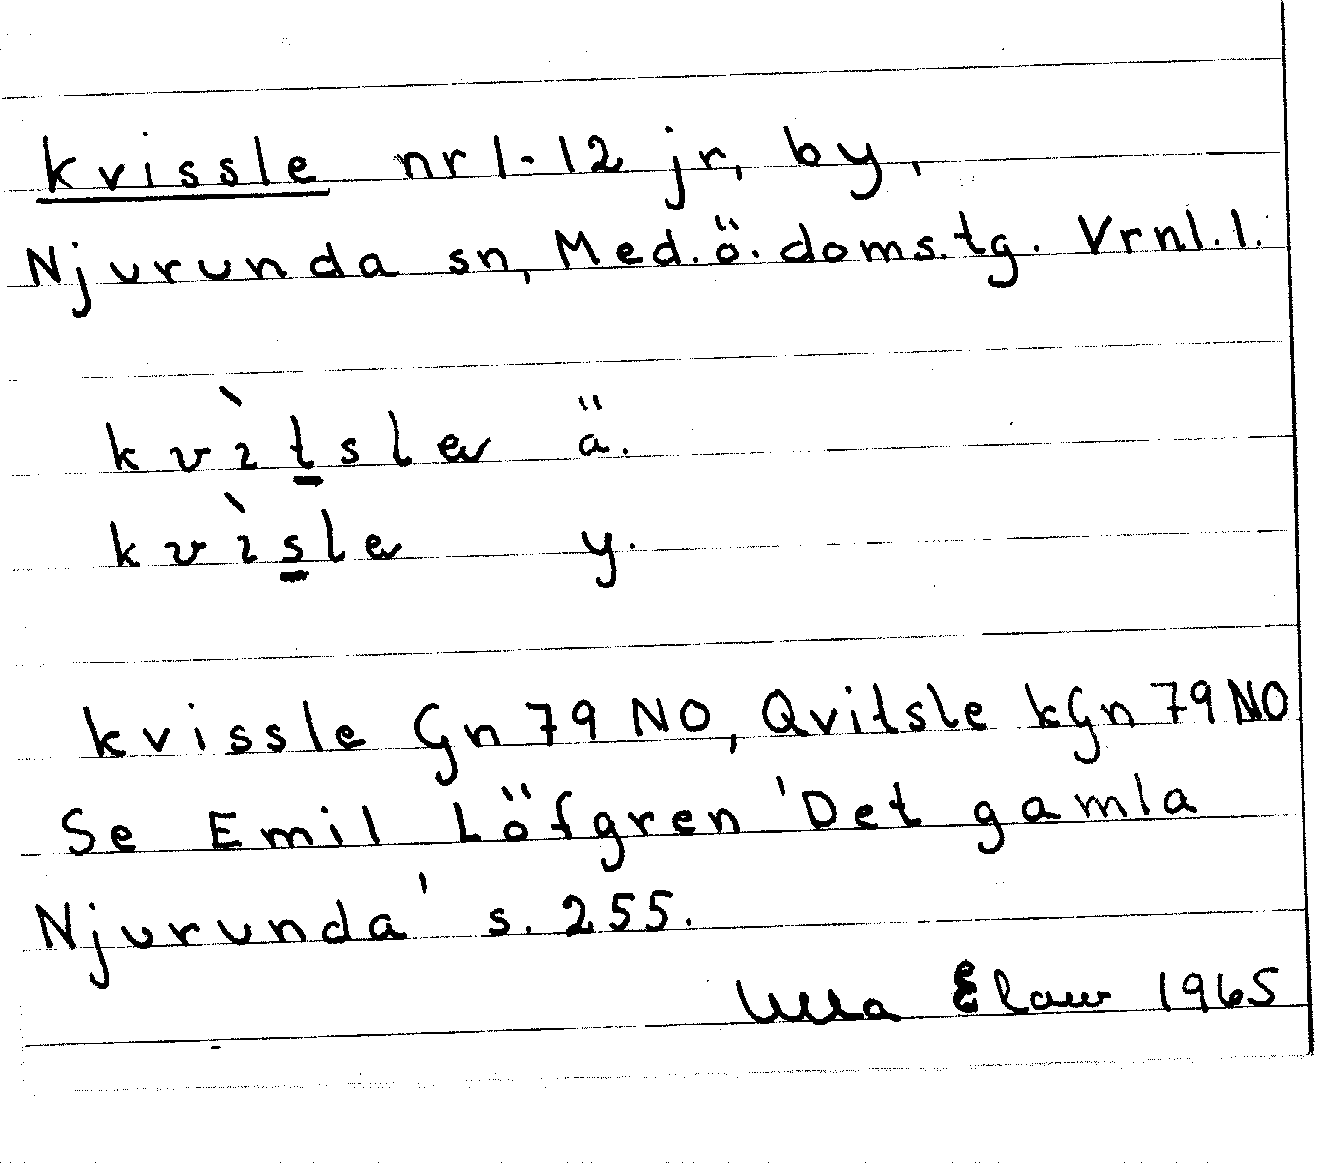 kvissle nr 1-12 jr, by,
Njurunda sn, Med.ö.doms.tg. Vrnl.l.
kvɩ̀tslɐ ä.
kvɩ̀slɐ y.
kvissle Gn 79 NO, Qvitsle kGn 79 NO
Se Emil Löfgren 'Det gamla
Njurunda' s. 255.
Ulla 1965